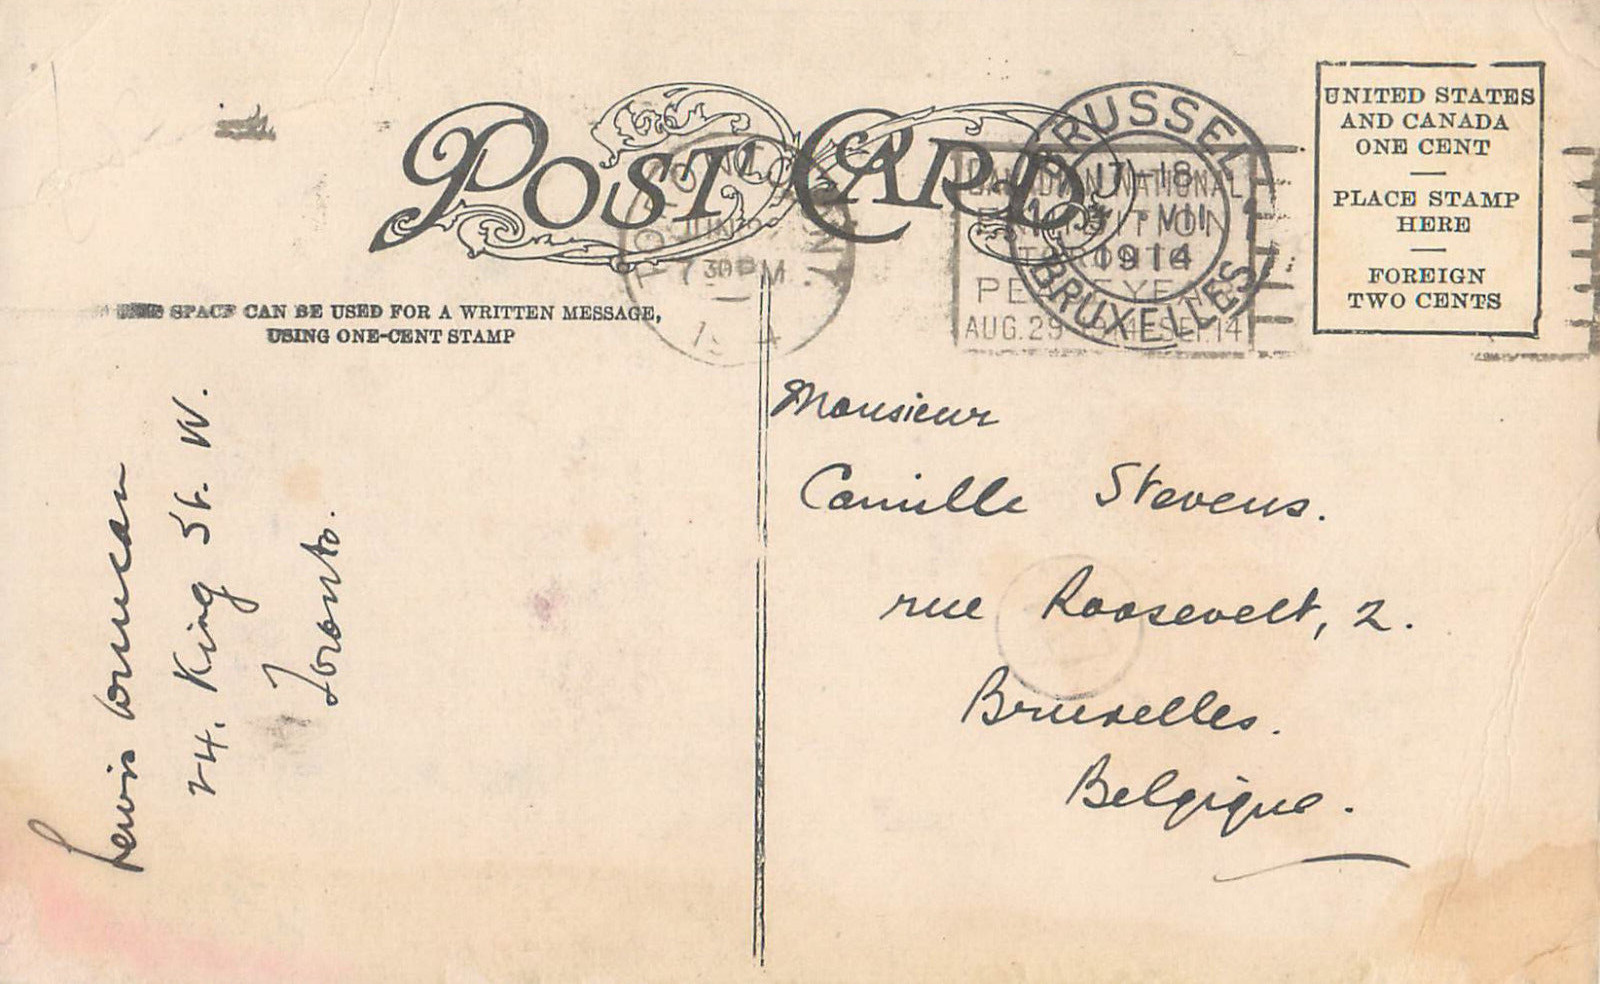 POST CARD
SPACE CAN BE USED FOR A WRITTEN MESSAGE,
USING ONE-CENT STAMP
UNITED STATES
AND CANADA
ONE CENT
PLACE STAMP
HERE
FOREIGN
TWO CENTS
TORONTO
JUN
7 30 P M
BRUSSEL
17-18
VII
1914
BRUXELLES
CANADIAN NATIONAL
EXHIBITION
TORONTO
PEACE YEAR
AUG. 29 1914 SEP. 14
Monsieur
Camille Stevens.
rue Roosevelt, 2.
Bruxelles.
Belgique.
Lewis Duncan
24. King St. W.
Toronto.